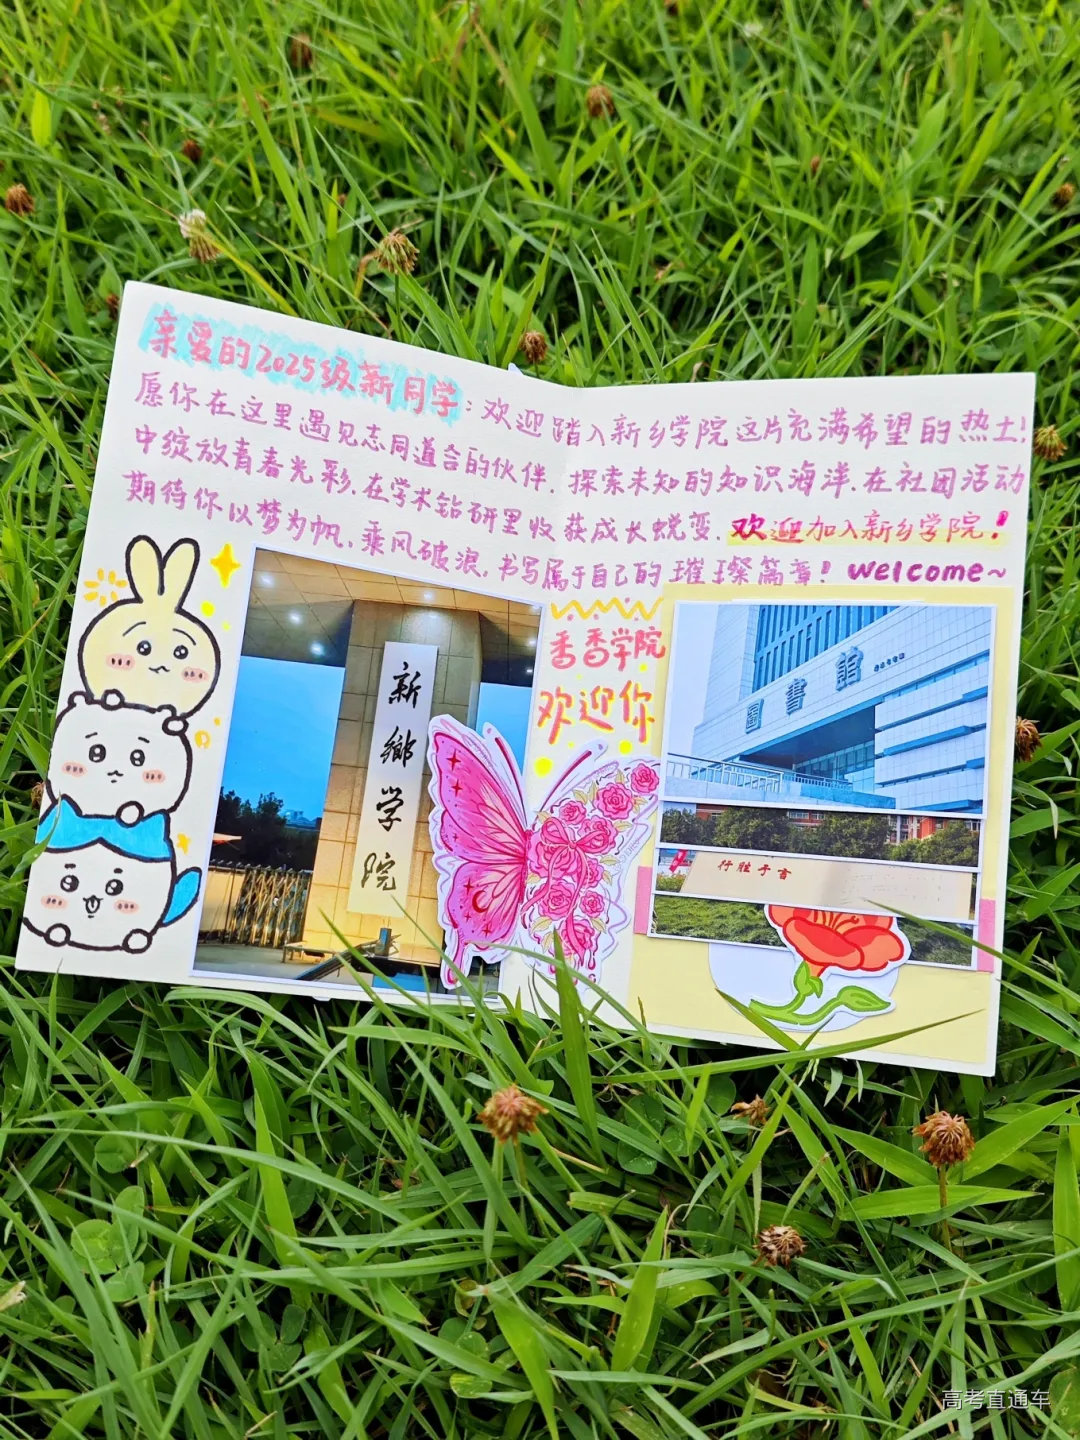 亲爱的2025级新同学：欢迎踏入新乡学院这片充满希望的热土！
愿你在这里遇见志同道合的伙伴，探索未知的知识海洋，在社团活动
中绽放青春光彩，在学术钻研里收获成长蜕变。欢迎加入新乡学院！
期待你以梦为帆，乘风破浪，书写属于自己的璀璨篇章！welcome~
香香学院
欢迎你
新鄉学院
圖書館
行胜于言
高考直通车